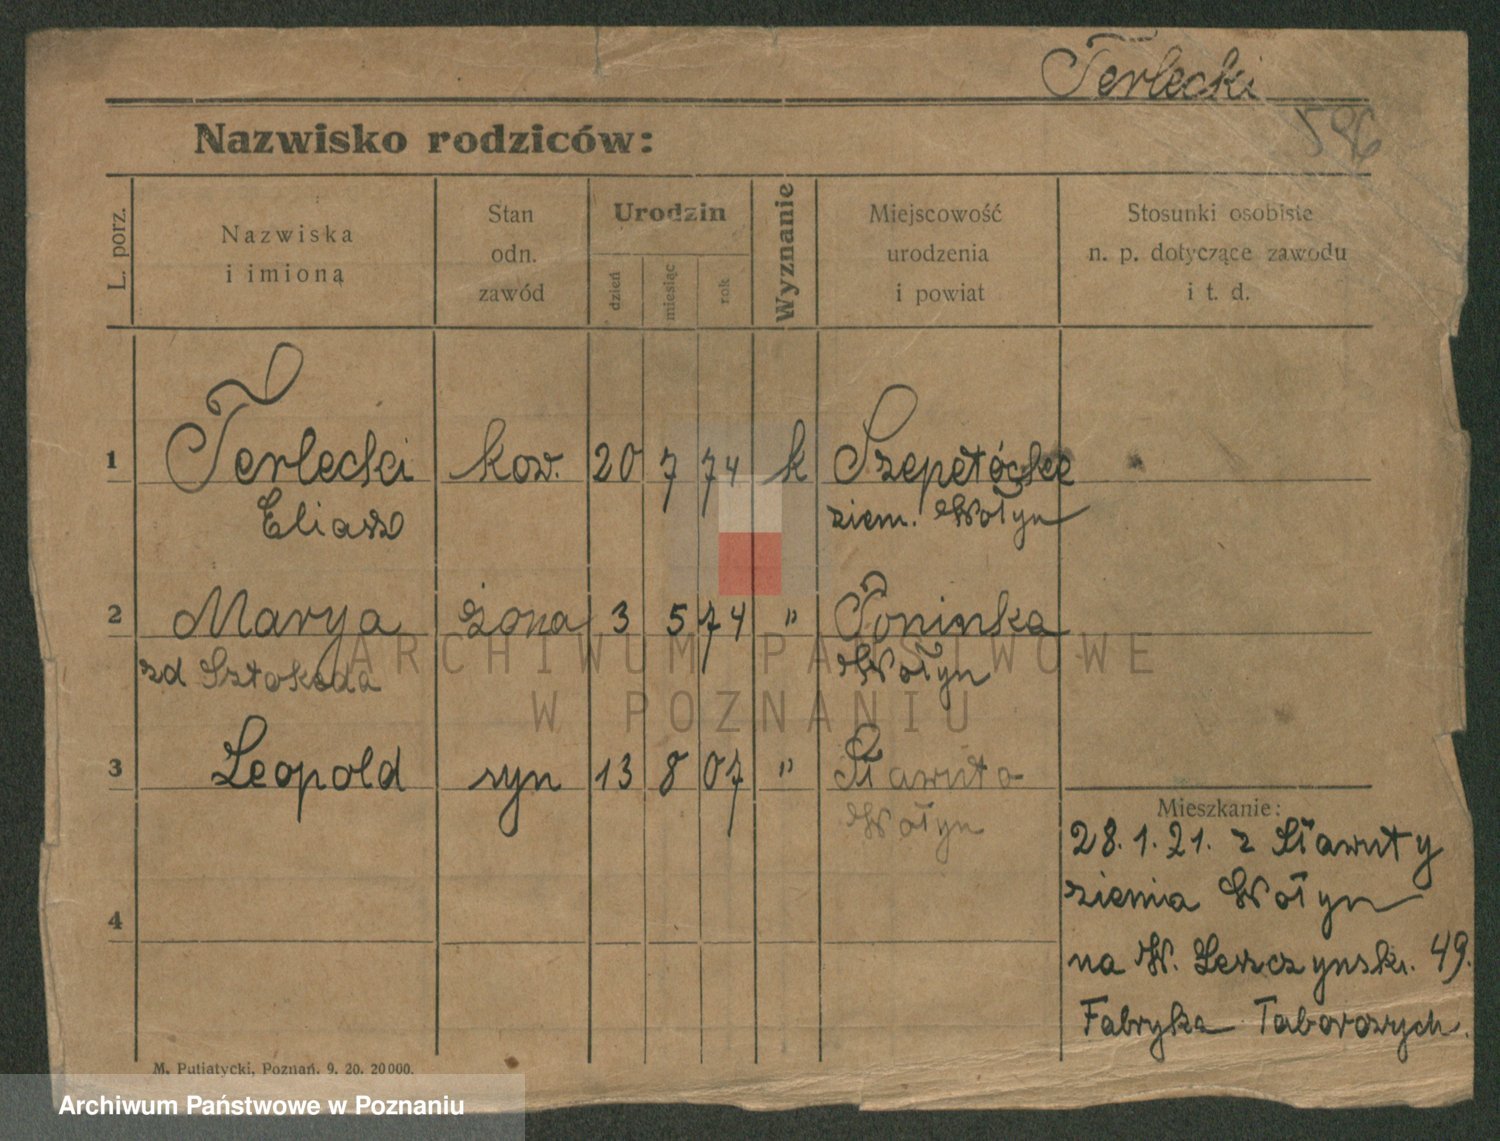 Terlecki
596
Nazwisko rodziców:
L. porz.
Nazwiska
i imioną
Stan
odn.
zawód
Urodzin
dzień
miesiąc
rok
Wyznanie
Miejscowość
urodzenia
i powiat
Stosunki osobiste
n. p. dotyczące zawodu
i t. d.
1 Terlecki kow. 20 7 74 k
Eliasz ziem. Wołyn
2 Marya żona 3 5 74 " Poninka
zd Wołyn
3 Leopold syn 13 8 07 " Sławuta
Wołyn
4
Mieszkanie:
28.1.21. z Sławuty
ziemia Wołyn
na W. Leszczynski. 49.
Fabryka Taborowych.
M. Putiatycki, Poznań. 9. 20. 20000.
ARCHIWUM PAŃSTWOWE
W POZNANIU
Archiwum Państwowe w Poznaniu